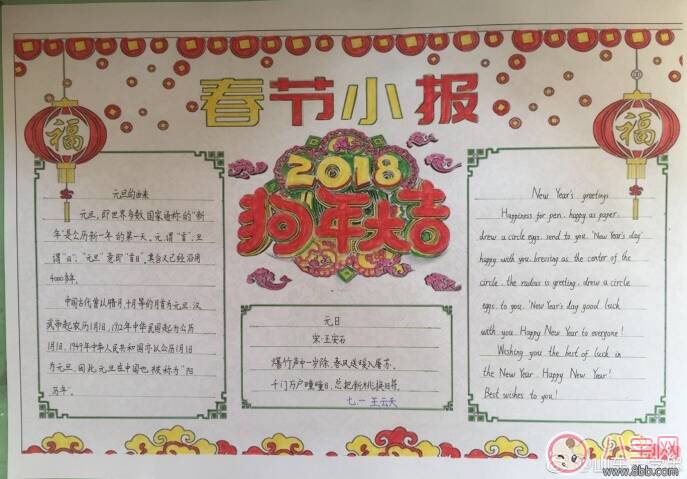 春节小报
福
福
2018
狗年大吉
元旦的由来
元旦，即世界多数国家通称的“新
年”是公历新一年的第一天。元，谓“首”；旦
谓“日”；“元旦”意即“首日”。其含义已经沿用
4000多年。
中国古代曾以腊月、十月等的月首为元旦，汉
武帝起农历1月1日，1912年中华民国起为公历
1月1日，1949年中华人民共和国亦以公历1月1日
为元旦，因此元旦在中国也被称为“阳
历年”。
元日
宋·王安石
爆竹声中一岁除，春风送暖入屠苏。
千门万户曈曈日，总把新桃换旧符。
七.一 王云天
New Year's greetings
Happiness for pen, happy as paper,
drew a circle eggs, send to you. 'New Year's day'
happy with you. bressing as the center of the
circle, the radius is greeting, drew a circle
eggs, to you. 'New Year's day good luck
with you. Happy New Year to everyone!
Wishing you the best of luck in
the New Year. Happy New Year!
Best wishes to you!
八宝网
www.8bb.com